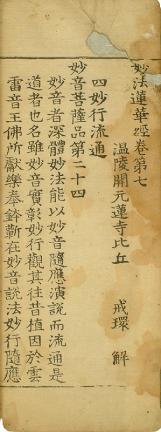 妙法蓮華經卷第七
温陵開元蓮寺比丘 戒環 解
四妙行流通
妙音菩薩品第二十四
妙音者深體妙法能以妙音隨應演說而流通是
道者也名雖妙音實彰妙行觀其往昔植因於雲
雷音王佛所獻樂奉鉢蘄在妙音說法妙行隨應